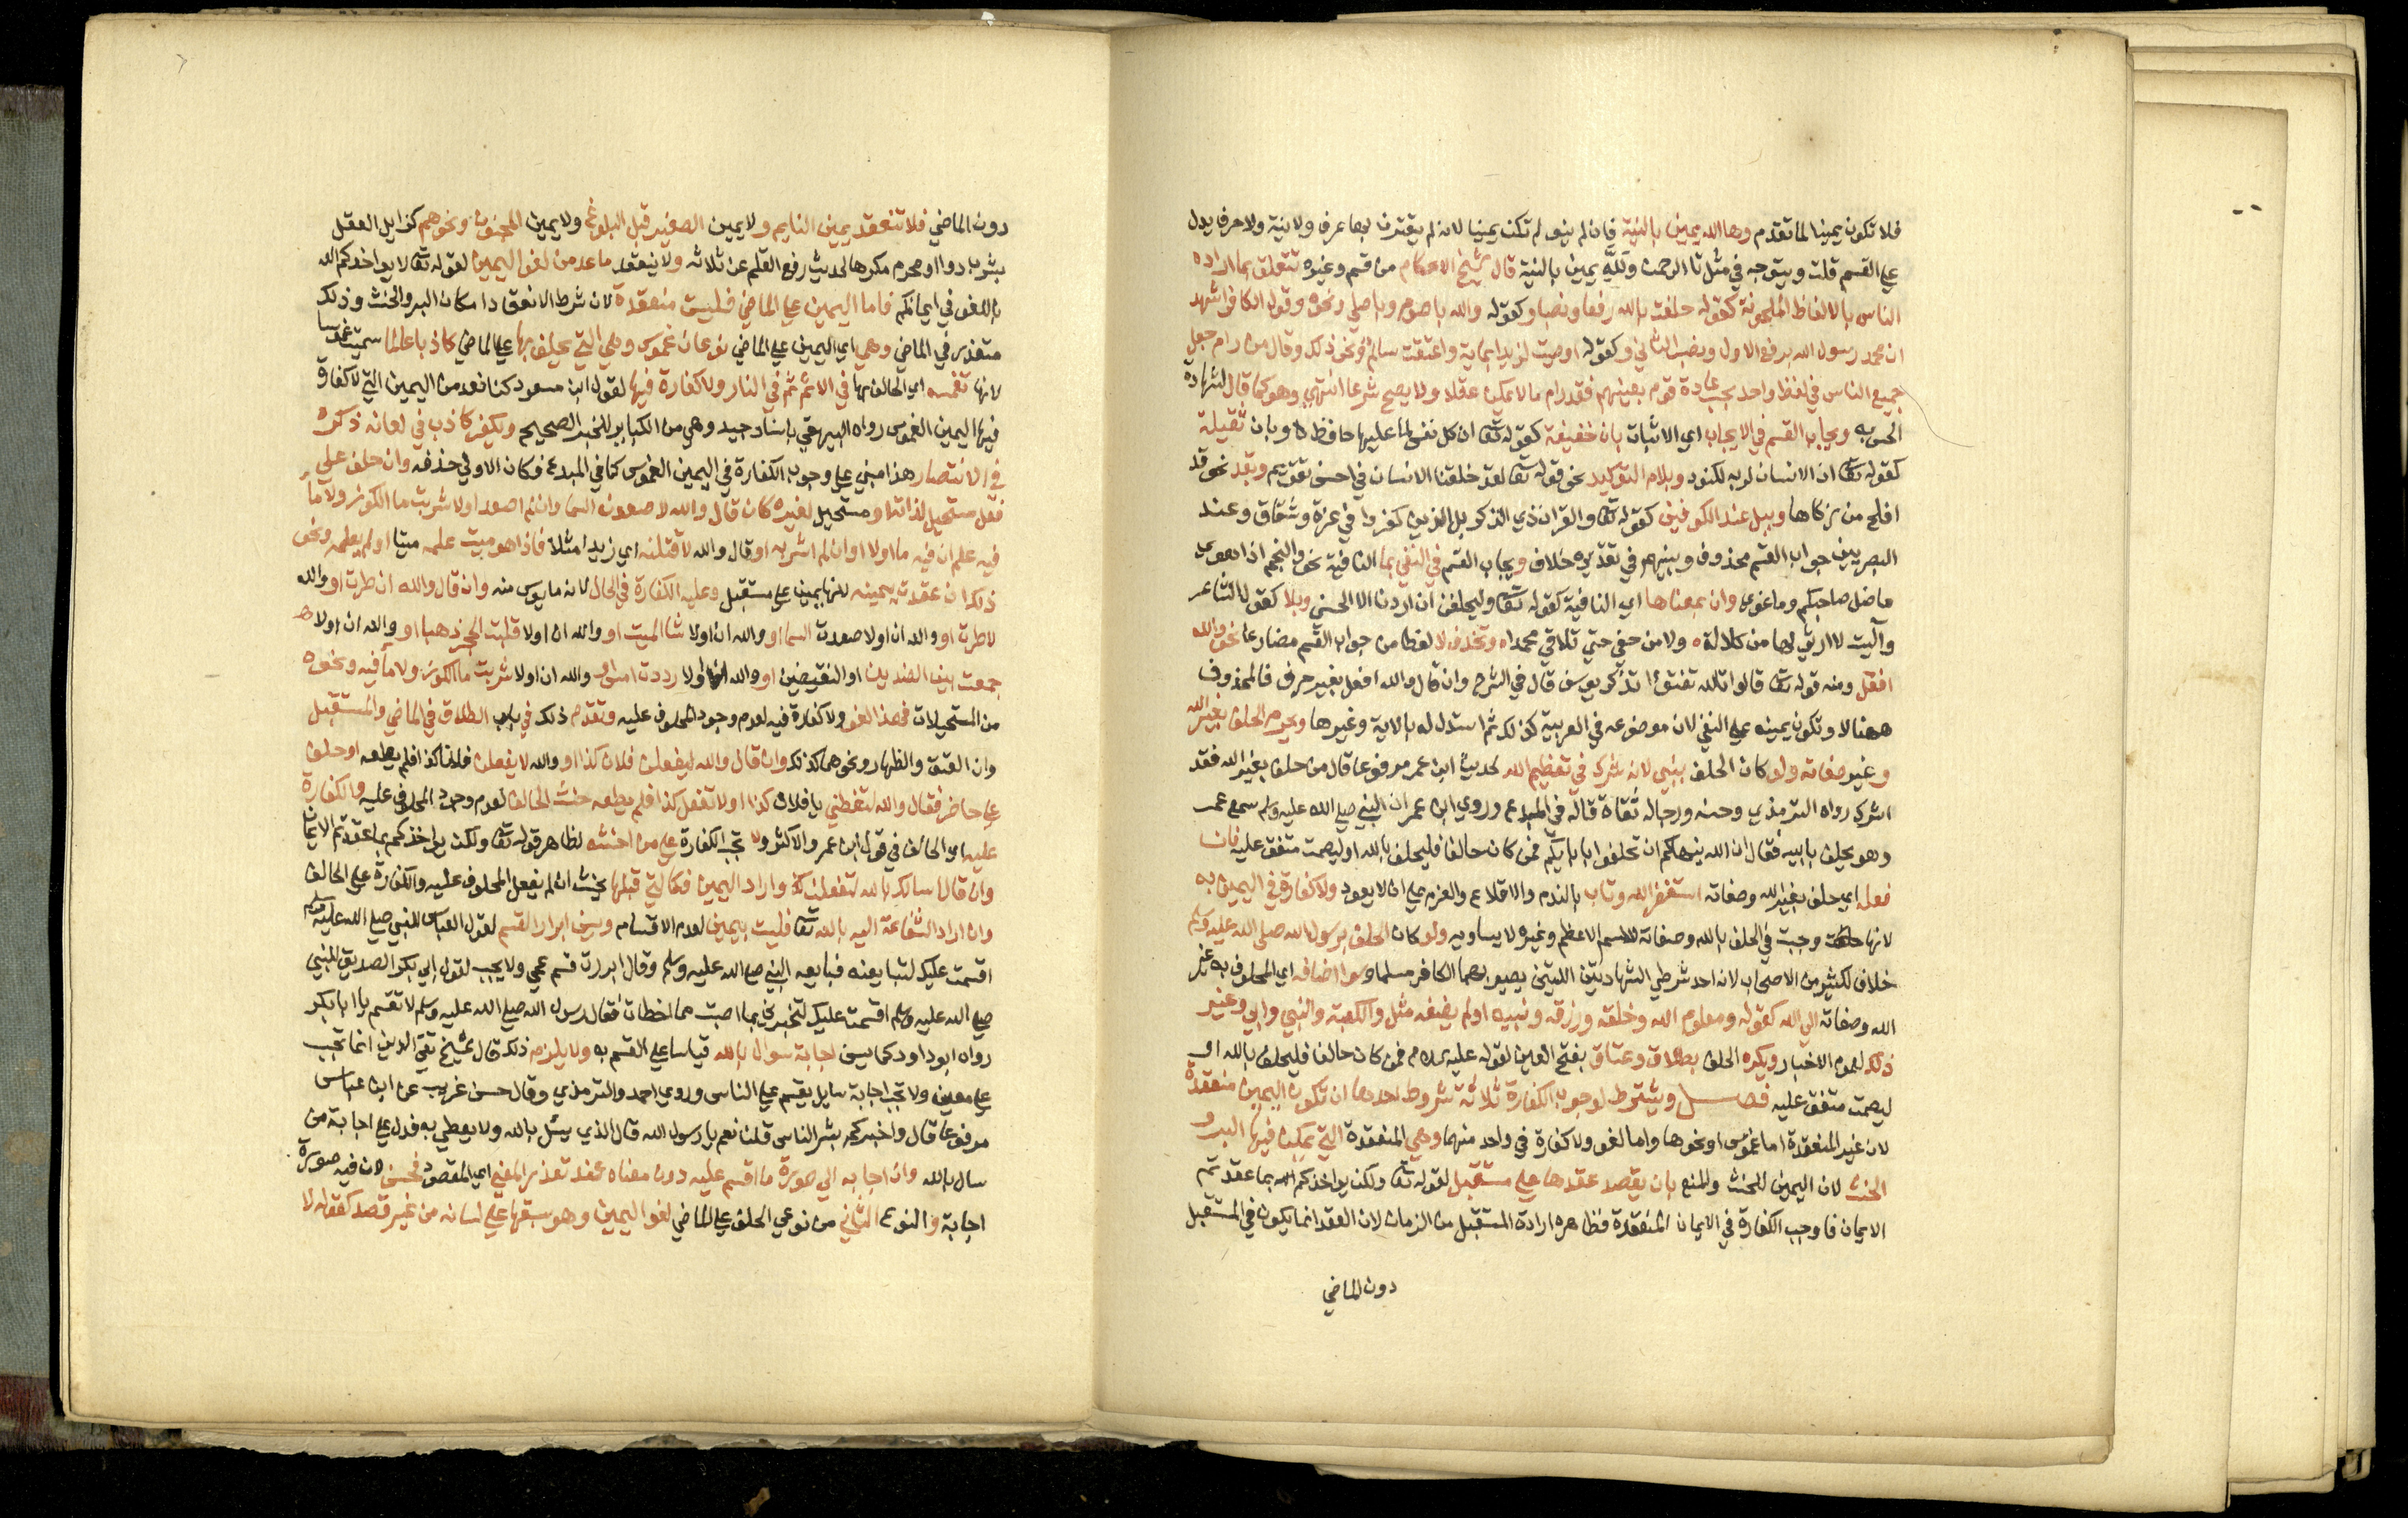 فلا تكون يمينا لما تقدم وها الله يمين بالنية فان لم ينو لم تكن يمينا لانه لم يقترن بها عرف ولا نية ولا حرف يدل
علي القسم قلت ويتوجه في مثل تا الرحمن ولله يمين بالنية قال شيخ الاحكام من قسم وغيره تتعلق بما اراده
الناس بالالفاظ الملحونة كقوله حلفت بالله رفعا ونصبا وكقوله والله باصوم وباصلي ونحوه وقول الكافر اشهد
ان محمد رسول الله برفع الاول ونصب الثاني وكقوله اوصيت لزيد بماية واعتقت سالم ونحو ذلك وقال من رام جعل
جميع الناس في لفظ واحد بحسب عادة قوم بعينهم فقد رام ما لا يمكن عقلا ولا يصح شرعا انتهي وهو كما قال لشهادة
الحس به ويجاب القسم في الايجاب اي الاثبات بان خفيفة كقوله تعا ان كل نفس لما عليها حافظ ه وبان ثقيلة
كقوله تعا ان الانسان لربه لكنود وبلام التوكيد نحو قوله تعا لقد خلقنا الانسان في احسن تقويم وبقد نحو قد
افلح من زكاها وببل عند الكوفيين كقوله تعا والقران ذي الذكر بل الذين كفروا في عزة وشقاق وعند
البصريين جواب القسم محذوف وبينهم في تقديره خلاف ويجاب القسم في النفي بما النافية نحو والنجم اذا هوي
ما ضل صاحبكم وما غوي وان بمعناها اي النافية كقوله تعا وليحلفن ان اردنا الا الحسني وبلا كقول الشاعر
وآليت لا ارثي لها من كلالة ه ولا من حفي حتي تلاقي محمدا ه وتحذف لا لفظا من جواب القسم مضارعا نحو والله
افعل ومنه قوله تعا قالوا تالله تفتؤا تذكر يوسف قال في الشرح وان قال والله افعل بغير حرف فالمحذوف
ههنا لا وتكون يمينه علي النفي لان موضوعه في العربية كذلك ثم استدل له بالاية وغيرها ويحرم الحلف بغير الله
وغير صفاته ولو كان الحلف بنبي لانه شرك في تعظيم الله لحديث ابن عمر مرفوعا قال من حلف بغير الله فقد
اشرك رواه الترمذي وحسنه ورجاله ثقاة قاله في المبدع وروي ابن عمر ان النبي صلي الله عليه وسلم سمع عمر
وهو يحلف بابيه فقال ان الله ينهاكم ان تحلفوا بابايكم فمن كان حالفا فليحلف بالله او ليصمت متفق عليه فان
فعله اي حلف بغير الله وصفاته استغفر الله وتاب بالندم والاقلاع والعزم علي ان لا يعود ولا كفارة في اليمين به
لانها وجبت في الحلف بالله وصفاته للاسم الاعظم وغيره لا يساويه ولو كان الحلف برسول الله صلي الله عليه وسلم
خلاف لكثير من الاصحاب لانه احد شرطي الشهادتين اللتين يصير بهما الكافر مسلما وسوا اضافه اي المحلوف به غير
الله وصفاته الي الله كقوله ومعلوم الله وخلقه ورزقه ونبيه او لم يضفه مثل والكعبة والنبي وابي وغير
ذلك لعموم الاخبار ويكره الحلف بطلاق وعتاق بفتح العين لقوله عليه السلام فمن كان حالفا فليحلف بالله او
ليصمت متفق عليه فصل ويشترط لوجوب الكفارة ثلاثة شروط احدها ان تكون اليمين منعقدة
لان غير المنعقدة اما غموس او نحوها واما لغو ولا كفارة في واحد منهما وهي المنعقدة التي يمكن فيها البر و
الحنث لان اليمين للحنث والمنع بان يقصد عقدها علي مستقبل لقوله تعا ولكن يواخذكم الله بما عقدتم
الايمان فاوجب الكفارة في الايمان المنعقدة فظاهره ارادة المستقبل من الزمان لان العقد انما يكون في المستقبل
دون الماضي
دون الماضي فلا تنعقد يمين النايم ولا يمين الصغير قبل البلوغ ولا يمين المجنون ونحوهم كزايل العقل
بشرب دوا او محرم مكرها لحديث رفع القلم عن ثلاثه ولا ينعقد ما عد من لغو اليمين لقوله تعا لا يواخذكم الله
باللغو في ايمانكم فاما اليمين علي الماضي فليست منعقدة لان شرط الانعقاد امكان البر والحنث وذلك
متعذر في الماضي وهي اي اليمين علي الماضي نوعان غموس وهي التي يحلف بها علي الماضي كاذبا عالما سميت غموسا
لانها تغمسه اي الحالف بها في الاثم ثم في النار ولا كفارة فيها لقول ابن مسعود كنا نعد من اليمين التي لا كفارة
فيها اليمين الغموس رواه البيهقي باسناد جيد وهي من الكباير للخبر الصحيح ويكفر كاذب في لعانه ذكره
في الانتصار هذا مبني علي وجوب الكفارة في اليمين الغموس كما في المبدع فكان الاولي حذفه وان حلف علي
فعل مستحيل لذاته او مستحيل لغيره كان قال والله لا صعدت السما وان لم اصعد او لا شربت ما الكوز ولا ما
فيه علم ان فيه ما اولا او ان لم اشربه او قال والله لاقتلنه اي زيدا مثلا فاذا هو ميت علمه ميتا او لم يعلمه ونحو
ذلك انعقدت يمينه لانها يمين علي مستقبل وعليه الكفارة في الحال لانه مايوس منه وان قال والله ان طرت او والله
لا طرت او والله ان او لا صعدت السما او والله ان او لا شا الميت او والله ان او لا قلبت الحجر ذهبا او والله ان او لا
جمعت بين الضدين او النقيضين او والله ان او لا رددت امس او والله ان او لا شربت ما الكوز ولا ما فيه ونحوه
من المستحيلات فهذا لغو ولا كفارة فيه لعدم وجود المحلوف عليه وتقدم ذلك في باب الطلاق في الماضي والمستقبل
وان العتق والظهار ونحوهما كذلك وان قال والله ليفعلن فلان كذا او والله لا يفعلن فلان كذا فلم يطعه او حلف
علي حاضر فقال والله لتفعلن يا فلان كذا او لا تفعل كذا فلم يطعه حنث الحالف لعدم وجود المحلوف عليه والكفارة
عليه اي الحالف في قول ابن عمر والاكثر ولا تجب الكفارة علي من احنثه لظاهر قوله تعا ولكن يواخذكم بما عقدتم الايمان
وان قال اسالك بالله لتفعلن كذا واراد اليمين فكالتي قبلها يحنث ان لم يفعل المحلوف عليه والكفارة علي الحالف
وان اراد الشفاعة اليه بالله تعا فليست بيمين لعدم الاقسام ويسن ابرار القسم لقول العباس للنبي صلي الله عليه وسلم
اقسمت عليك لتبايعنه فبايعه النبي صلي الله عليه وسلم وقال ابررت قسم عمي ولا يجب لقول ابي بكر الصديق للنبي
صلي الله عليه وسلم اقسمت عليك لتخبرني بما اصبت مما اخطات فقال رسول الله صلي الله عليه وسلم لا تقسم يا ابا بكر
رواه ابوداود كما يسن اجابة سوال بالله قياسا علي القسم به ولا يلزمه ذلك قال الشيخ تقي الدين انما تجب
علي معين ولا تجب اجابة سايل يقسم علي الناس وروي احمد والترمذي وقال حسن غريب عن ابن عباس
مرفوعا قال واخبركم بشر الناس قلنا نعم يا رسول الله قال الذي يسئل بالله ولا يعطي به فدل علي اجابة من
سال بالله وان اجابه الي صورة ما اقسم عليه دون معناه عند تعذر المعني اي المقصود فحسن لان فيه صورة
اجابة والنوع الثاني من نوعي الحلف علي الماضي لغو اليمين وهو سبقها علي لسانه من غير قصد كقوله لا